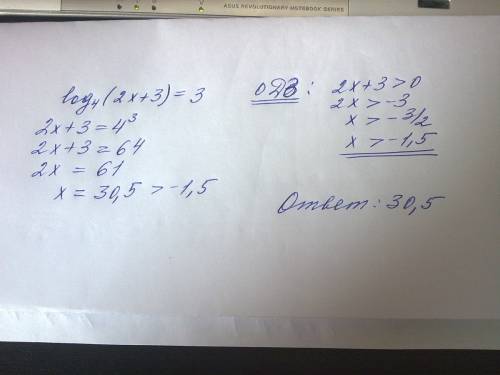 ASUS REVOLUTIONARY NOTEBOOK SERIES
log₄(2x+3)=3
2x+3=4³
2x+3=64
2x = 61
x = 30,5 > -1,5
ОДЗ: 2x+3>0
2x>-3
x > -3/2
x > -1,5
Ответ: 30,5